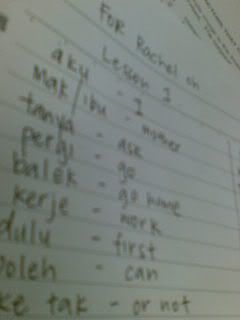 For Rachel oh
Lesson 1
aku - I
Mak/ibu - mother
tanya - ask
pergi - go
balek - go home
kerje - work
dulu - first
boleh - can
ke tak - or not